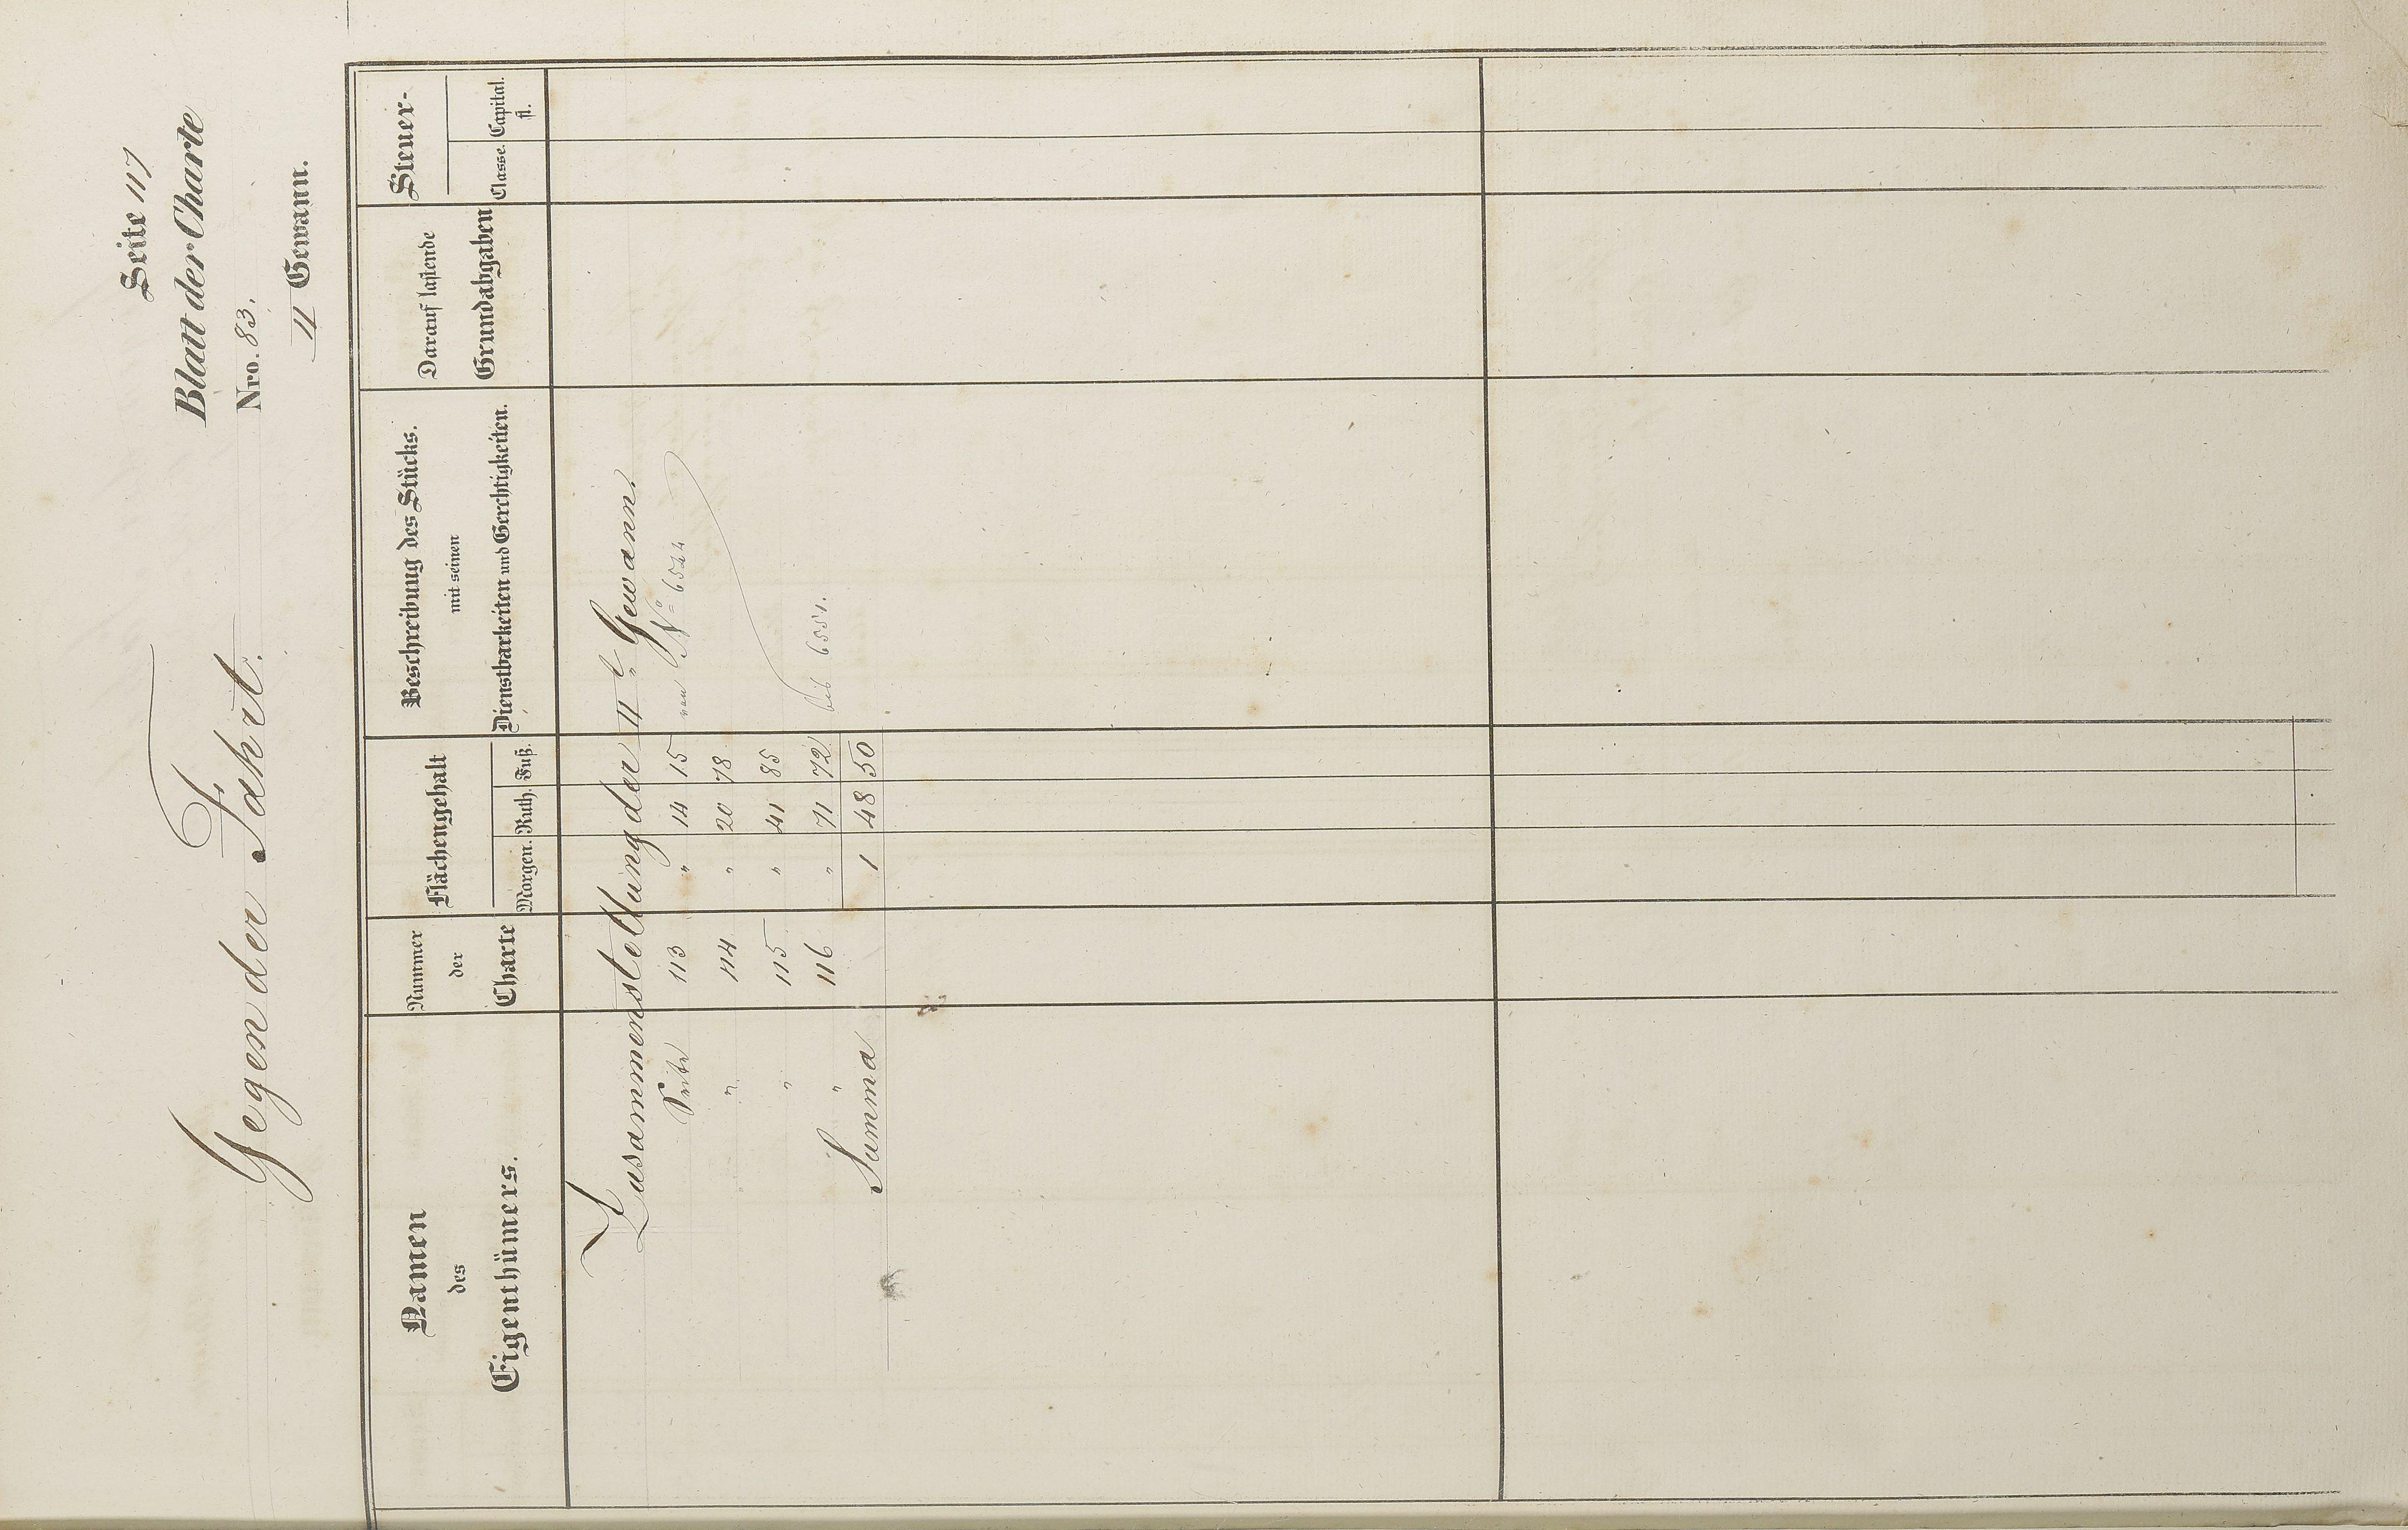 Seite 117
Blatt der Charte
Nro. 83.
II Gewann.
Gegen der Fahrt.
Namen des Eigenthümers.
Nummer der Charte
Flächengehalt
Morgen. Ruth. Fuß.
Beschreibung des Stücks.
mit seinen
Dienstbarkeiten und Gerechtigkeiten.
Darauf lastende
Grundabgaben
Steuer-
Classe. Capital.
fl.
Zusammenstellung der II t. Gewann.
Seite 113 " 14 15 von No 6524
" 114 " 20 78
" 115 " 41 85
" 116 " 71 72 bis 6551.
Summa 1 48 50